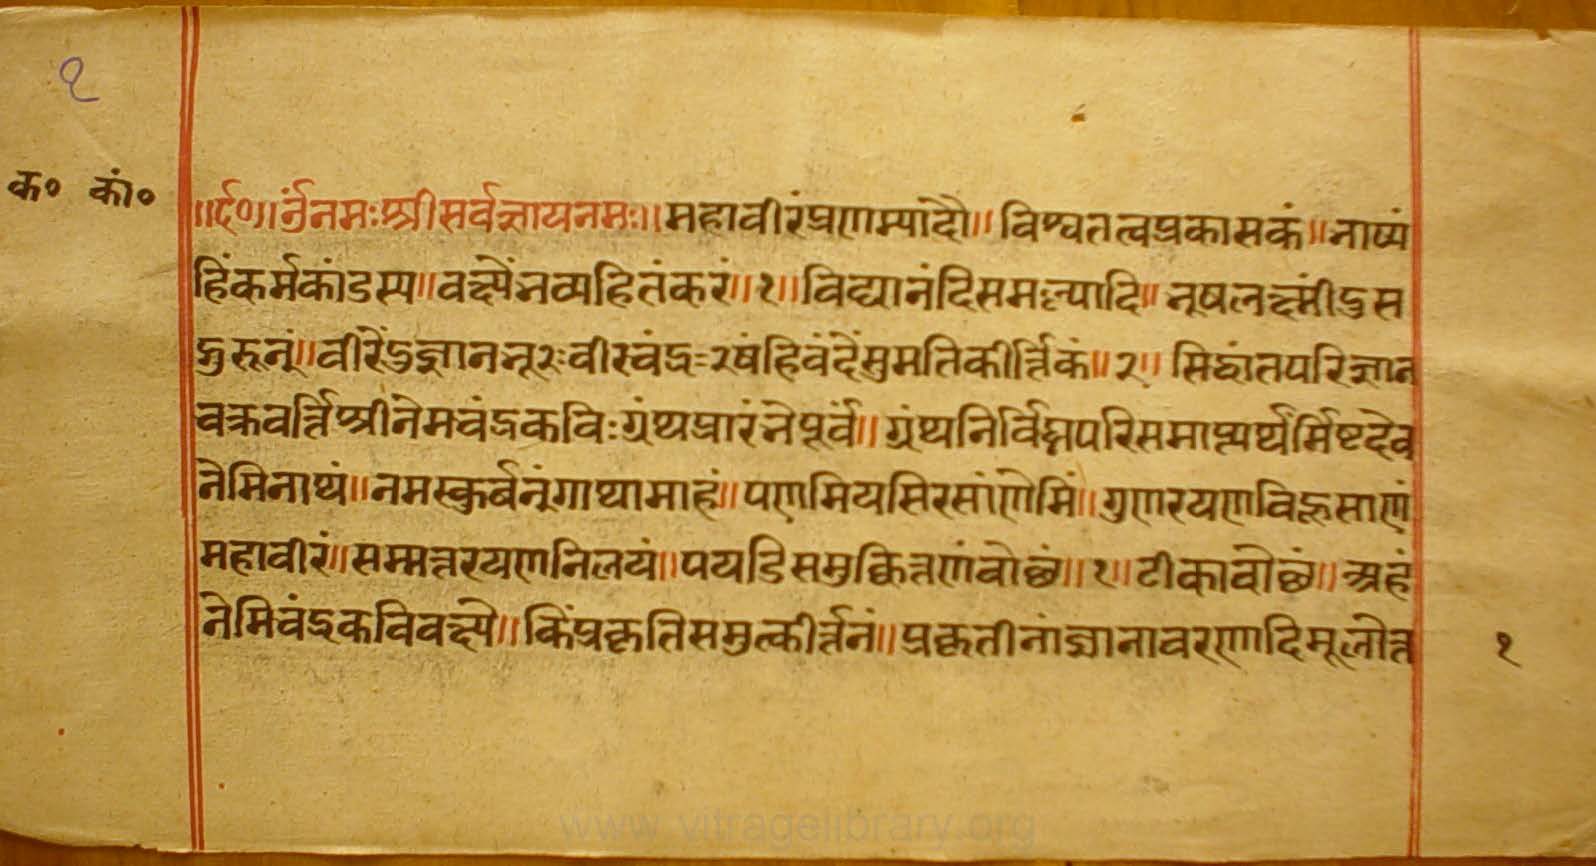 १
क० कां०
॥र्द०॥ र्नुनमःश्रीसर्वज्ञायनमः॥महावीरंप्रणम्यादौ॥विश्वतत्वप्रकासकं॥नाष्यं
हिंकर्मकांडस्य॥वक्ष्येनव्यहितंकरं॥१॥विद्यानंदिसमल्यादि॥नूषलक्ष्मींडुस
वीरेंडुज्ञाननू हिवंदेंसुमतिकीर्त्तिकं॥२॥सिद्धांतपरिज्ञान
चक्रवर्त्तिश्रीनेमचंद्रकविःग्रंथप्रारंनेपूर्वं॥ग्रंथनिर्विघ्नपरिसमाप्त्यर्थंमिष्टदेव
नेमिनाथं॥नमस्कुर्बनूंगाथामाहं॥पणमियसिरसांणेमिं॥गुणरयणविहूसाणं
महावीरं॥सम्मत्तरयणनिलयं॥पयडिसमुक्कित्तणंवोछं॥१॥टीकावोछं॥अहं
नेमिचंद्रकविवक्ष्ये॥किंप्रकृतिसमुत्कीर्त्तनं॥प्रकृतीनांज्ञानावरणादिमूलोत्त
१
www.vitragelibrary.org